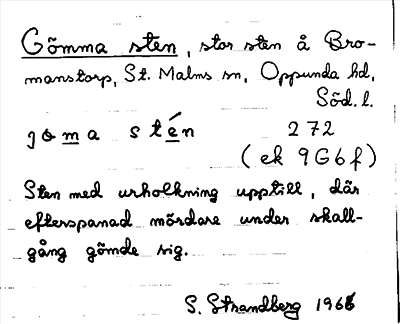 Gömma sten, stor sten å Bro-
manstorp, St. Malms sn, Oppunda hd,
Söd. l.
göma stén 272
(ek 9G6f)
Sten med urholkning upptill, där
efterspanad mördare under skall-
gång gömde sig.
S. Strandberg 1966